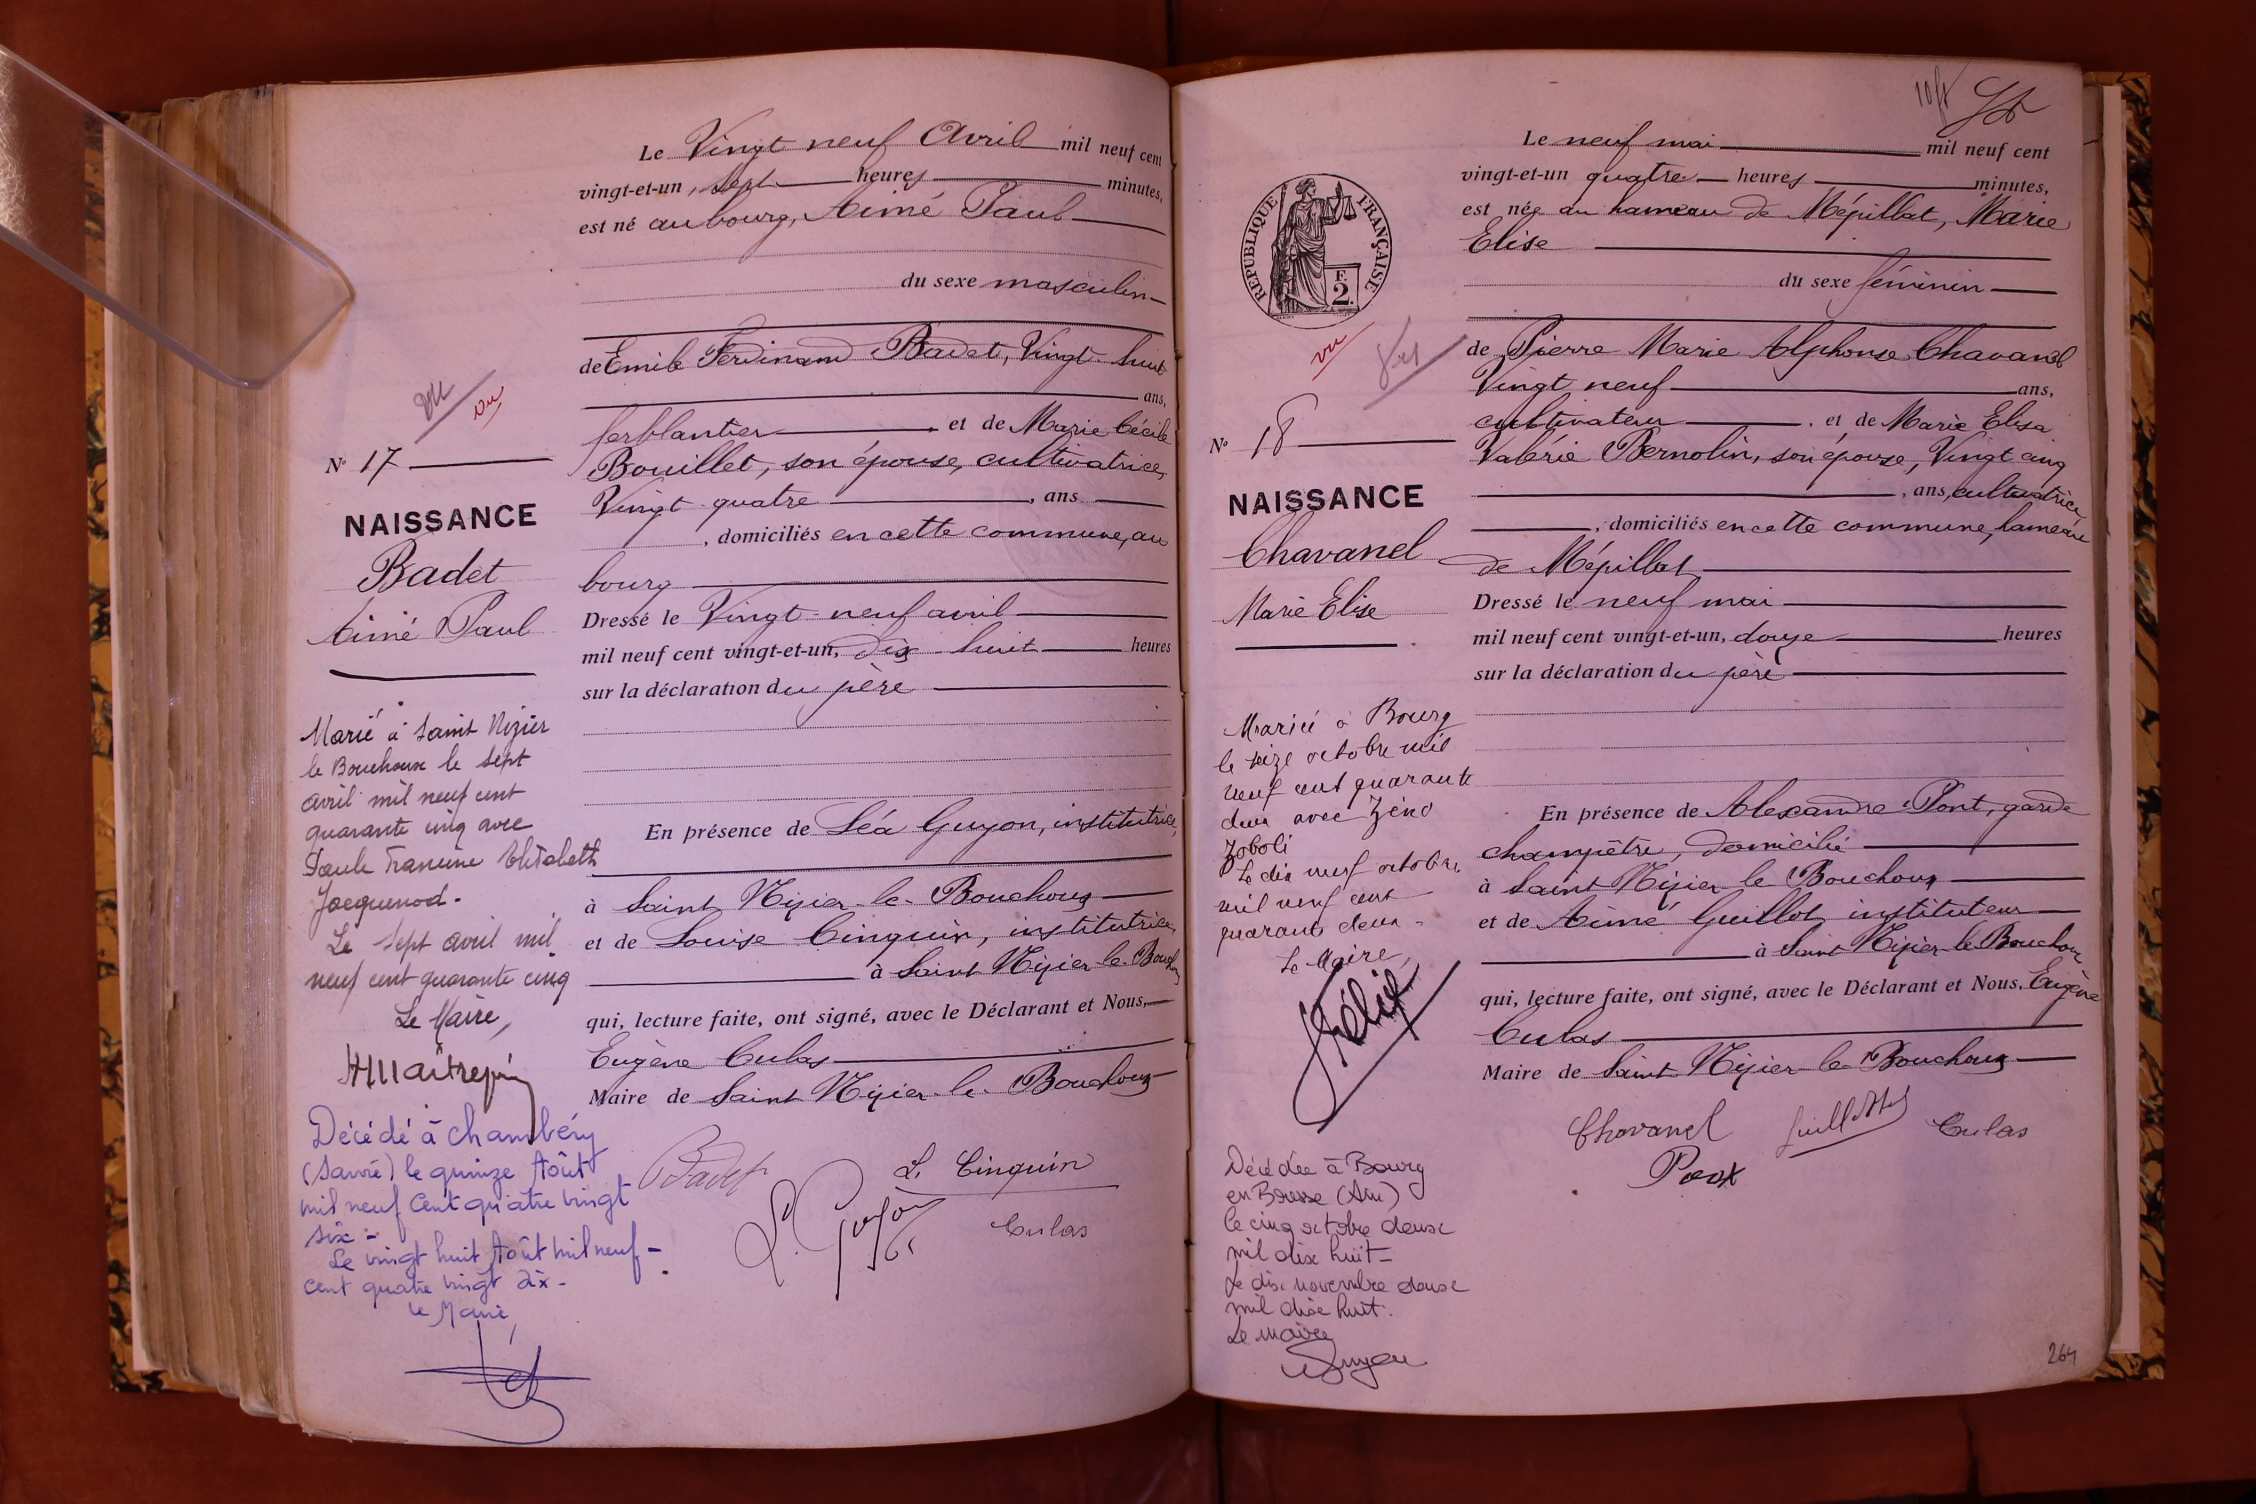 Le Vingt neuf Avril mil neuf cent
vingt-et-un, sept heures minutes,
est né au bourg, Aimé Paul
du sexe masculin
de Emile Ferdinand Badet, Vingt huit
ans,
ferblantier, et de Marie Cécile
Bouillet, son épouse, cultivatrice,
Vingt quatre, ans
, domiciliés en cette commune, au
bourg
Dressé le Vingt-neuf avril
mil neuf cent vingt-et-un, dix huit heures
sur la déclaration du père
En présence de Léa Guyon, institutrice,
à Saint Nizier-le-Bouchoux
et de Louise Cinquin, institutrice,
à Saint Nizier-le-Bouchoux
qui, lecture faite, ont signé, avec le Déclarant et Nous,
Eugène Culas
Maire de Saint Nizier-le-Bouchoux
Badet
L. Cinquin
L. Guyon
Culas
vu
vu
No 17
NAISSANCE
Badet
Aimé Paul
Marié à Saint Nizier
le Bouchoux le sept
avril mil neuf cent
quarante cinq avec
Paule Francine Elisabeth
Jacquenod.
Le sept avril mil
neuf cent quarante cinq
Le Maire,
Décédé à Chambéry
(Savoie) le quinze Août
mil neuf cent quatre vingt
six -
Le vingt huit Août mil neuf-
cent quatre vingt six -
Le Maire,
10f
Le neuf mai mil neuf cent
vingt-et-un quatre heures minutes,
est née au hameau de Mépillat, Marie
Elise
du sexe féminin
de Pierre Marie Alphonse Chavanel
Vingt neuf ans,
cultivateur, et de Marie Elisa
Valérie Bernolin, son épouse, Vingt cinq
, ans, cultivatrice
, domiciliés en cette commune, hameau
de Mépillat
Dressé le neuf mai
mil neuf cent vingt-et-un, douze heures
sur la déclaration du père
En présence de Alexandre Pont, garde
champêtre, domicilié
à Saint Nizier le Bouchoux
et de Aimé Guillot, instituteur
à Saint Nizier-le-Bouchoux
qui, lecture faite, ont signé, avec le Déclarant et Nous, Eugène
Culas
Maire de Saint Nizier-le-Bouchoux
Chavanel
Guillot
Culas
Pont
RÉPUBLIQUE FRANÇAISE
F.
2.
vu
No 18
NAISSANCE
Chavanel
Marie Elise
Mariée à Bourg
le seize octobre mil
neuf cent quarante
deux avec Zéno
Zoboli
Le dix neuf octobre
mil neuf cent
quarante deux -
Le Maire,
Décédée à Bourg
en Bresse (Ain)
le cinq octobre deux
mil dix huit -
Le dix novembre deux
mil dix huit.
Le Maire
264